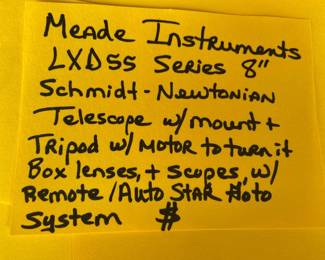 Meade Instruments
LXD55 Series 8"
Schmidt-Newtonian
Telescope w/ mount +
Tripod w/ MOTOR to turn it
Box lenses, + scopes, w/
Remote / Auto Star
System $